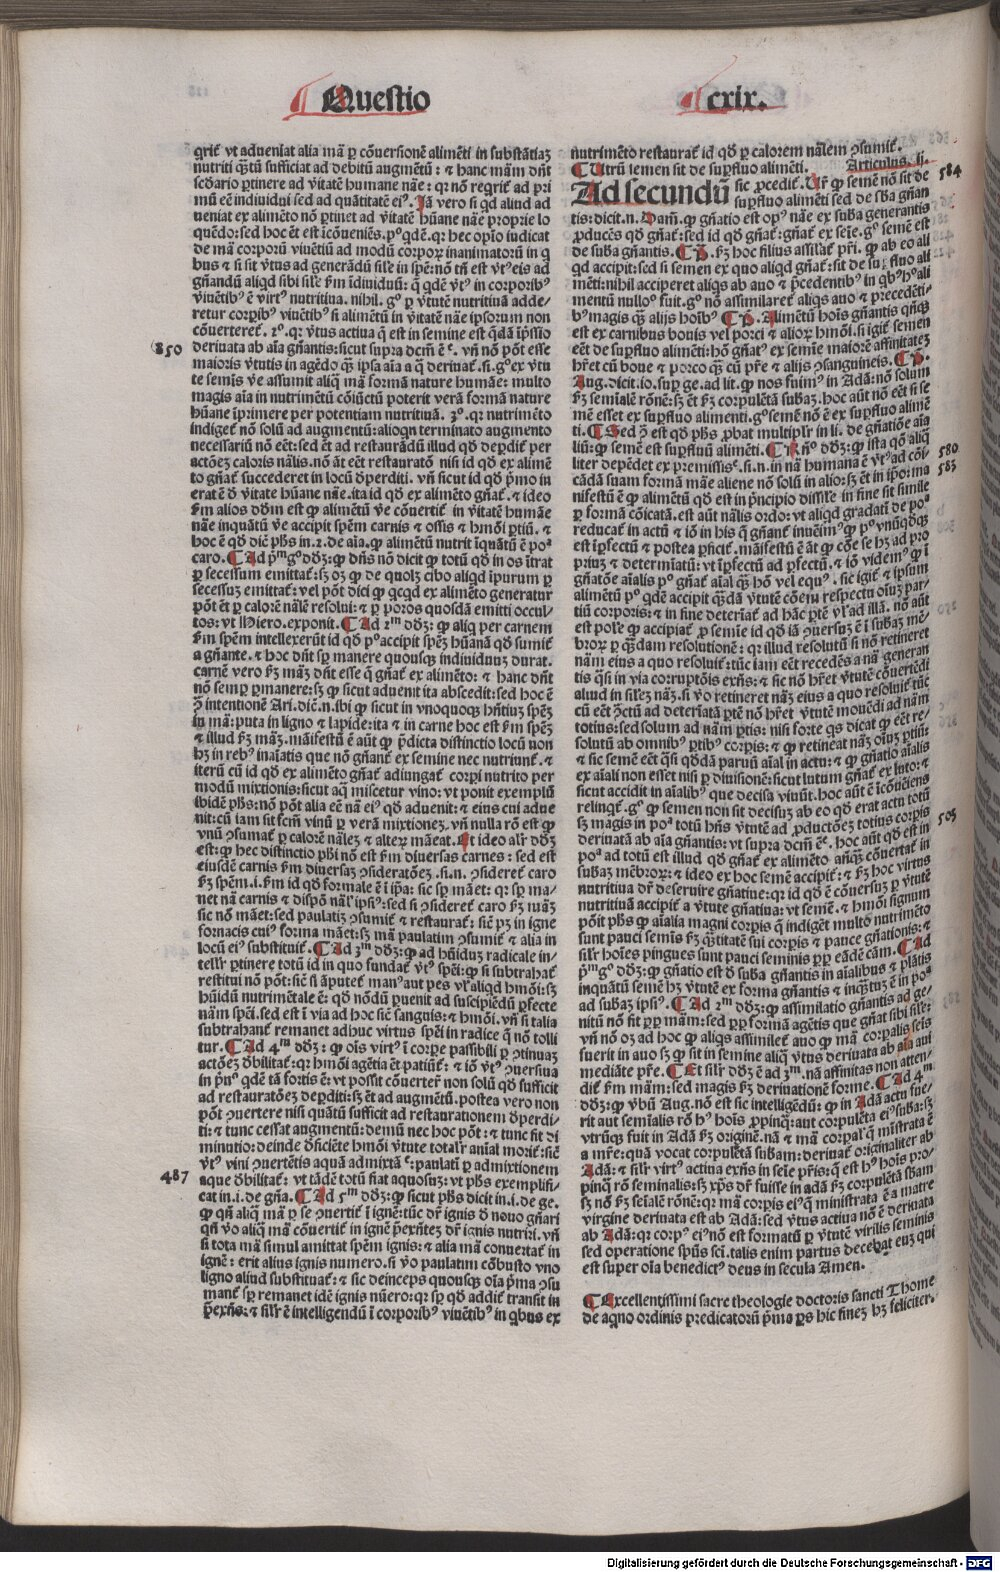 Questio cxix.
q̄rit᷑ vt adueniat alia mã ꝑ cõuersionẽ alimẽti in substãtiaʒ
nutriti q̃ʒtũ sufficiat ad debitũ augmẽtũ: ⁊ hanc mãm dn̄t
scd̃ario ꝑtinere ad v̓itatẽ humane nãe: qꝛ nõ reqrit᷑ ad pri
mũ eẽ indiuidui sed ad quãtitatẽ ei⁹. Jã vero si qd aliud ad
ueniat ex alimẽto nõ ꝑtinet ad v̓itatẽ hũane nãe proprie lo
quẽdo: sed hoc ẽt est icõueniẽs. pº qdẽ. qꝛ hec opĩo iudicat
de mã corporũ viuẽtiũ ad modũ corporꝝ inanimatorũ in q
bus ⁊ si sit v̓tus ad generãdũ sil̓e in sp̃e: nõ tñ est vt⁹ eis ad
gñandũ aliqd sibi sil̓e ẜm ĩdiuiduũ: q̄ qdẽ v̓t⁹ in corporib⁹
viuẽtib⁹ ẽ virt⁹ nutritiua. nihil. gº ꝑ v̓tutẽ nutritiuã adde-
retur corꝑib⁹ viuẽtib⁹ si alimẽtũ in v̓itatẽ nãe ipsorum non
cõuerteret᷑. 2º. qꝛ v̓tus actiua q̄ est in semine est q̃dã ip̃ssio
deriuata ab aĩa gñantis: sicut supra dcm̃ ẽ ᶜ. vñ nõ põt esse
850
maioris v̓tutis in agẽdo q̃ʒ ip̃a aĩa a q̃ deriuat᷑. si. gº ex v̓tu
te semis v̓e assumit aliq̃ mã formã nature humãe: multo
magis aĩa in nutrimẽtũ cõiũctũ poterit verã formã nature
hũane ĩprimere per potentiam nutritiuã. 3º. qꝛ nutrimẽto
indiget᷑ nõ solũ ad augmentũ: alioqn terminato augmento
necessariũ nõ eẽt: sed ẽt ad restaurãdũ illud qd̓ deꝑdit᷑ per
actõeʒ caloris nãlis. nõ ãt eẽt restauratõ nisi id qd̓ ex alimẽ
to gñat᷑ succederet in locũ d̓perditi. vñ sicut id qd̓ p̃mo in
erat ẽ d̓ v̓itate hũane nãe. ita id qd̓ ex alimẽto gñat᷑. ⁊ ideo
ẜm alios dd̓m est ꝙ alimẽtũ v̓e cõuertit᷑ in v̓itatẽ humãe
nãe inquãtũ v̓e accipit sp̃em carnis ⁊ ossis ⁊ hmõi ꝑtiũ. ⁊
hoc ẽ qd̓ dič ph̃s in. 2. de aĩa. ꝙ alimẽtũ nutrit ĩquãtũ ẽ poª
caro. ¶ Ad p̃mgº dd̓ʒ: ꝙ dñs nõ dicit ꝙ totũ qd̓ in os ĩtrat
ꝑ secessum emittat᷑: sʒ oʒ ꝙ de quolʒ cibo aliqd ipurum ꝑ
secessuʒ emittat᷑: vel põt dici ꝙ qcqd ex alimẽto generatur
põt ẽt ꝑ calorẽ nãlẽ resolui: ⁊ ꝑ poros quosdã emitti occul-
tos: vt Hiero. exponit. ¶ Ad 2m dd̓ʒ: ꝙ aliq ꝑ carnem
ẜm sp̃em intellexerũt id qd̓ pº accipit sp̃eʒ hũanã qd̓ sumit᷑
a gñante. ⁊ hoc dn̄t sꝑ manere quousqʒ indiuiduuʒ durat.
carnẽ vero ẜm mãʒ dn̄t esse q̃ gñat᷑ ex alimẽto: ⁊ hanc dn̄t
nõ semꝑ ꝑmanere: sʒ ꝙ sicut aduenit ita abscedit: sed hoc ẽ
ꝯ intentionẽ Ari. dič. n. ibi ꝙ sicut in vnoquoqʒ hñtiuʒ sp̃eʒ
in mã: puta in ligno ⁊ lapide: ita ⁊ in carne hoc est ẜm sp̃em
⁊ illud ẜm mãʒ. mãifestũ ẽ aũt ꝙ p̃dicta distinctio locũ non
hʒ in reb⁹ inaĩatis que nõ gñant᷑ ex semine nec nutriunt᷑. ⁊
iterũ cũ id qd̓ ex alimẽto gñat᷑ adiungat᷑ corꝑi nutrito per
modũ mixtionis: sicut aq̃ miscetur vino: vt ponit exemplũ
ibidẽ ph̃s: nõ põt alia eẽ nã ei⁹ qd̓ aduenit: ⁊ eius cui adue
nit: cũ iam sit fcm̃ vinũ ꝑ verã mixtioneʒ. vñ nulla rõ est ꝙ
vnũ ꝯsumat᷑ ꝑ calorẽ nãleʒ ⁊ alteꝝ mãeat. Et ideo alr̃ dd̓ʒ
est: ꝙ hec distinctio ph̃i nõ est ẜm diuersas carnes: sed est
eiusdẽ carnis ẜm diuersaʒ ꝯsideratõeʒ. si. n. ꝯsideret᷑ caro
ẜʒ sp̃em. i. ẜm id qd̓ formale ẽ ĩ ip̃a: sic sꝑ mãet: qꝛ sꝑ ma-
net nã carnis ⁊ dispõ nãl̓ ipsi⁹: sed si ꝯsideret᷑ caro ẜʒ mãʒ
sic nõ mãet: sed paulatiʒ ꝯsumit᷑ ⁊ restaurat᷑: sic pʒ in igne
fornacis cui⁹ forma mãet: sʒ mã paulatim ꝯsumit᷑ ⁊ alia in
locũ ei⁹ substituit᷑. ¶ Ad 3m dd̓ʒ: ꝙ ad hũiduʒ radicale in-
telr̃ ꝑtinere totũ id in quo fundat᷑ v̓t⁹ sp̃ei: ꝙ si subtrahat᷑
restitui nõ põt: sic̃ si ãputet᷑ man⁹ aut pes vl̓ aliqd hmõi: sʒ
hũidũ nutrimẽtale ẽ: qd̓ nõdũ ꝑuenit ad suscipiẽdũ ꝑfecte
nãm sp̃ei. sed est ĩ via ad hoc sic̃ sanguis: ⁊ hmõi. vñ si talia
subtrahant᷑ remanet adhuc virtus sp̃ei in radice q̃ nõ tolli
tur. ¶ Ad 4m dd̓ʒ: ꝙ oĩs virt⁹ ĩ corꝑe passibili ꝑ ꝯtinuaʒ
actõeʒ d̓bilitat᷑: qꝛ hmõi agẽtia ẽt patiũt᷑: ⁊ iõ v̓t⁹ ꝯuersiua
in p̃nº qdẽ tã fortis ẽ: vt possit cõuerter̃ non solũ qd̓ sufficit
ad restauratõeʒ deꝑditi: sʒ ẽt ad augmẽtũ. postea vero non
põt ꝯuertere nisi quãtũ sufficit ad restaurationem d̓perdi-
ti: ⁊ tunc cessat augmentũ: demũ nec hoc põt: ⁊ tunc fit di
minutio: deinde d̓ficiẽte hmõi v̓tute totalr̃ aĩal morit᷑: sic̃
v̓t⁹ vini ꝯuertẽtis aquã admixtã ᶜ: paulati ꝑ admixtionem
487
aque d̓bilitat᷑: vt tãdẽ totũ fiat aquosuʒ: vt ph̃s exemplifi-
cat in. i. de gñã. ¶ Ad 5m dd̓ʒ: ꝙ sicut ph̃s dicit in. i. de ge.
ꝙ qñ aliq̃ mã ꝑ se ꝯuertit᷑ ĩ ignẽ: tũc dr̃ ignis d̓ nouo gñari
qñ v̓o aliq̃ mã cõuertit᷑ in ignẽ p̃exñteʒ dr̃ ignis nutriri. vñ
si tota mã simul amittat sp̃em ignis: ⁊ alia mã conuertat᷑ in
ignẽ: erit alius ignis numero. si v̓o paulatim cõbusto vno
ligno aliud substituat᷑: ⁊ sic deinceps quousqʒ oĩa p̃ma ꝯsu
mant᷑ sꝑ remanet idẽ ignis nũero: qꝛ sꝑ qd̓ addit᷑ transit in
p̃exñs: ⁊ silr̃ ẽ intelligendũ ĩ corporib⁹ viuẽtib⁹ in qbus ex
nutrimẽto restaurat᷑ id qd̓ ꝑ calorem nãlem ꝯsumit᷑.
¶ Utrũ semen sit de suꝑfluo alimẽti. Articulus. ij.
584
Ad secundũ sic ꝓcedit᷑. Ur̃ ꝙ semẽ nõ sit de
suꝑfluo alimẽti sed de sb̃a gñan
tis: dicit. n. Dam̃. ꝙ gñatio est op⁹ nãe ex suba generantis
ꝓducẽs qd̓ gñat᷑: sed id qd̓ gñat᷑: gñat᷑ ex seĩe. gº semẽ est
de suba gñantis. ¶ P̃. ẜʒ hoc filius assĩlat᷑ pr̃i. ꝙ ab eo ali
qd accipit: sed si semen ex quo aliqd gñat᷑: sit de suꝑfluo ali
mẽti: nihil acciperet aliqs ab auo ⁊ p̃cedentib⁹ in qb⁹ hº ali
mentũ nulloº fuit. gº nõ assimilaret᷑ aliqs auo ⁊ precedẽti-
b⁹ magis q̃ʒ alijs hoĩb⁹ ¶ P̃. Alimẽtũ hoĩs gñantis qñqʒ
est ex carnibus bouis vel porci ⁊ alioꝝ hmõi. si igit᷑ semen
eẽt de suꝑfluo alimẽti: hõ gñat⁹ ex semĩe maiorẽ affinitateʒ
hr̃et cũ boue ⁊ porco q̃ʒ cũ pr̃e ⁊ alijs ꝯsanguineis. ¶ P̃.
Aug. dicit. io. suꝑ ge. ad lit. ꝙ nos fuim⁹ in Adã: nõ solum
ẜʒ semĩalẽ rõnẽ: sʒ ẽt ẜʒ corpulẽtã subaʒ. hoc aũt nõ eẽt si se
mẽ esset ex suꝑfluo alimenti. gº semẽ nõ ẽ ex suꝑfluo alimẽ
ti. ¶ Sed ꝯ̃ est qd̓ ph̃s ꝓbat multiplr̃ in li. de gñatiõe aĩa
liũ: ꝙ semẽ est suꝑfluũ alimẽti. ¶ Rñº dd̓ʒ: ꝙ ista qõ aliq̃
580
liter depẽdet ex premissisᶜ. si. n. in nã humana ẽ v̓t⁹ ad cõi
583
cãdã suam formã mãe aliene nõ solũ in alio: sʒ ẽt in ip̃o: ma
nifestũ ẽ ꝙ alimẽtũ qd̓ est in p̃ncipio dissĩle in fine sit simile
ꝑ formã cõicatã. est aũt nãlis ordo: vt aliqd gradati de poª
reducat᷑ in actũ ⁊ iõ in his q̃ gñant᷑ inueim⁹ ꝙ pº vnũqd̓qʒ
est ĩꝑfectũ ⁊ postea ꝑficit᷑. mãifestũ ẽ ãt ꝙ cõe se hʒ ad pro
priuʒ ⁊ determĩatũ: vt ĩꝑfectũ ad ꝑfectũ. ⁊ iõ videm⁹ ꝙ ĩ
gñatõe aĩalis pº gñat᷑ aĩal q̃ʒ hõ vel equ⁹. sic igit᷑ ⁊ ipsum
alimẽtũ pº qdẽ accipit q̃dã v̓tutẽ cõem respectu oĩuʒ par-
tiũ corporis: ⁊ in fine detert̃at᷑ ad hãc ꝑtẽ vl̓ ad illã. nõ aũt
est pos̃e ꝙ accipiat᷑ ꝓ semĩe id qd̓ iã ꝯuersuʒ ẽ ĩ subaʒ mẽ-
broꝝ ꝑ q̃ndam resolutionẽ: qꝛ illud resolutũ si nõ retineret
nãm eius a quo resoluit᷑: tũc iam eẽt recedẽs a nã generan
tis q̃si in via corruptõis exñs: ⁊ sic nõ hr̃et v̓tutẽ cõuertẽdi
aliud in sil̓eʒ nãʒ. si v̓o retineret nãʒ eius a quo resoluit᷑ tũc
cũ eẽt ꝯ̃ctũ ad deterĩatã ꝑtẽ nõ hr̃et v̓tutẽ mouẽdi ad nãm
totius: sed solum ad nãm ꝑtis: nisi forte qs dicat ꝙ eẽt re-
solutũ ab omnib⁹ ꝑtib⁹ corꝑis: ⁊ ꝙ retineat nãʒ oĩuʒ ꝑtiũ:
⁊ sic semẽ eẽt q̃si q̃dã paruũ aĩal in actu: ⁊ ꝙ gñatio aĩalis
ex aĩali non esset nisi ꝑ diuisionẽ: sicut lutum gñat᷑ ex luto: ⁊
sicut accidit in aĩalib⁹ que decisa viuũt. hoc aũt ẽ ĩcõueniẽs
relinqt᷑. gº ꝙ semen non sit decisuʒ ab eo qd̓ erat actu totũ
sʒ magis in poª totũ hñs v̓tutẽ ad ꝓductõeʒ totius corꝑis
505
deriuatã ab aĩa gñantis: vt supra dcm̃ ẽᶜ. hoc aũt qd̓ est in
poª ad totũ est illud qd̓ gñat᷑ ex alimẽto añq̃ʒ cõuertat᷑ in
subaʒ mẽbroꝝ: ⁊ ideo ex hoc semẽ accipit᷑: ⁊ ẜʒ hoc virtus
nutritiua dr̃ deseruire gñatiue: qꝛ id qd̓ ẽ cõuersuʒ ꝑ v̓tutẽ
nutritiuã accipit᷑ a v̓tute gñatiua: vt semẽ. ⁊ hmõi signum
põit ph̃s ꝙ aĩalia magni corꝑis q̃ indigẽt multo nutrimẽto
sunt pauci semĩs ẜʒ q̃ʒtitatẽ sui corꝑis ⁊ pauce gñationis: ⁊
silr̃ hoĩes pingues sunt pauci seminis ꝓꝑ eãdẽ cãm. ¶ Ad
p̃mgº dd̓ʒ: ꝙ gñatio est d̓ suba gñantis in aĩalibus ⁊ plãtis
inquãtũ semẽ hʒ v̓tutẽ ex forma gñantis ⁊ inq̃ʒtuʒ ẽ in poª
ad subaʒ ipsi⁹. ¶ Ad 2m dd̓ʒ: ꝙ assimilatio gñantis ad ge-
nitũ nõ fit ꝓꝑ mãm: sed ꝓꝑ formã agẽtis que gñat sibi sil̓e:
vñ nõ oʒ ad hoc ꝙ aliqs assimilet᷑ auo ꝙ mã corꝑalis seĩs
fuerit in auo sʒ ꝙ sit in semine aliq̃ v̓tus deriuata ab aĩa aui
mediãte pr̃e. ¶ Et silr̃ dd̓ʒ ẽ ad 3m. nã affinitas non atten-
dit᷑ ẜm mãm: sed magis ẜʒ deriuationẽ forme. ¶ Ad 4m
dd̓ʒ: ꝙ v̓bũ Aug. nõ est sic intelligẽdũ: ꝙ in Adã actu fue-
rit aut semĩalis rõ h⁹ hoĩs ꝓpinq̃: aut corpulẽta ei⁹ suba: sʒ
vtrũqʒ fuit in Adã ẜʒ originẽ. nã ⁊ mã corꝑal̓ q̃ mĩstrata ẽ
a mr̃e: quã vocat corpulẽtã subam: deriuat᷑ originaliter ab
Adã: ⁊ silr̃ virt⁹ actiua exñs in seĩe pr̃is: q̃ est h⁹ hoĩs pro-
pinq̃ rõ seminalis: sʒ xp̃s dr̃ fuisse in adã ẜʒ corpulẽtã sb̃am
sʒ nõ ẜʒ seĩalẽ rõnẽ: qꝛ mã corꝑis ei⁹ q̃ ministrata ẽ a matre
virgine deriuata est ab Adã: sed v̓tus actiua nõ ẽ deriuata
ab Adã: qꝛ corp⁹ ei⁹ nõ est formatũ ꝑ v̓tutẽ virilis seminis
sed operatione sp̃us sc̃i. talis enim partus decebat euʒ qui
est super oĩa benedict⁹ deus in secula Amen.
¶ Excellentissimi sacre theologie doctoris sancti Thome
de aqno ordinis predicatorũ p̃ma ꝑs hic fineʒ hʒ feliciter.
Digitalisierung gefördert durch die Deutsche Forschungsgemeinschaft - DFG